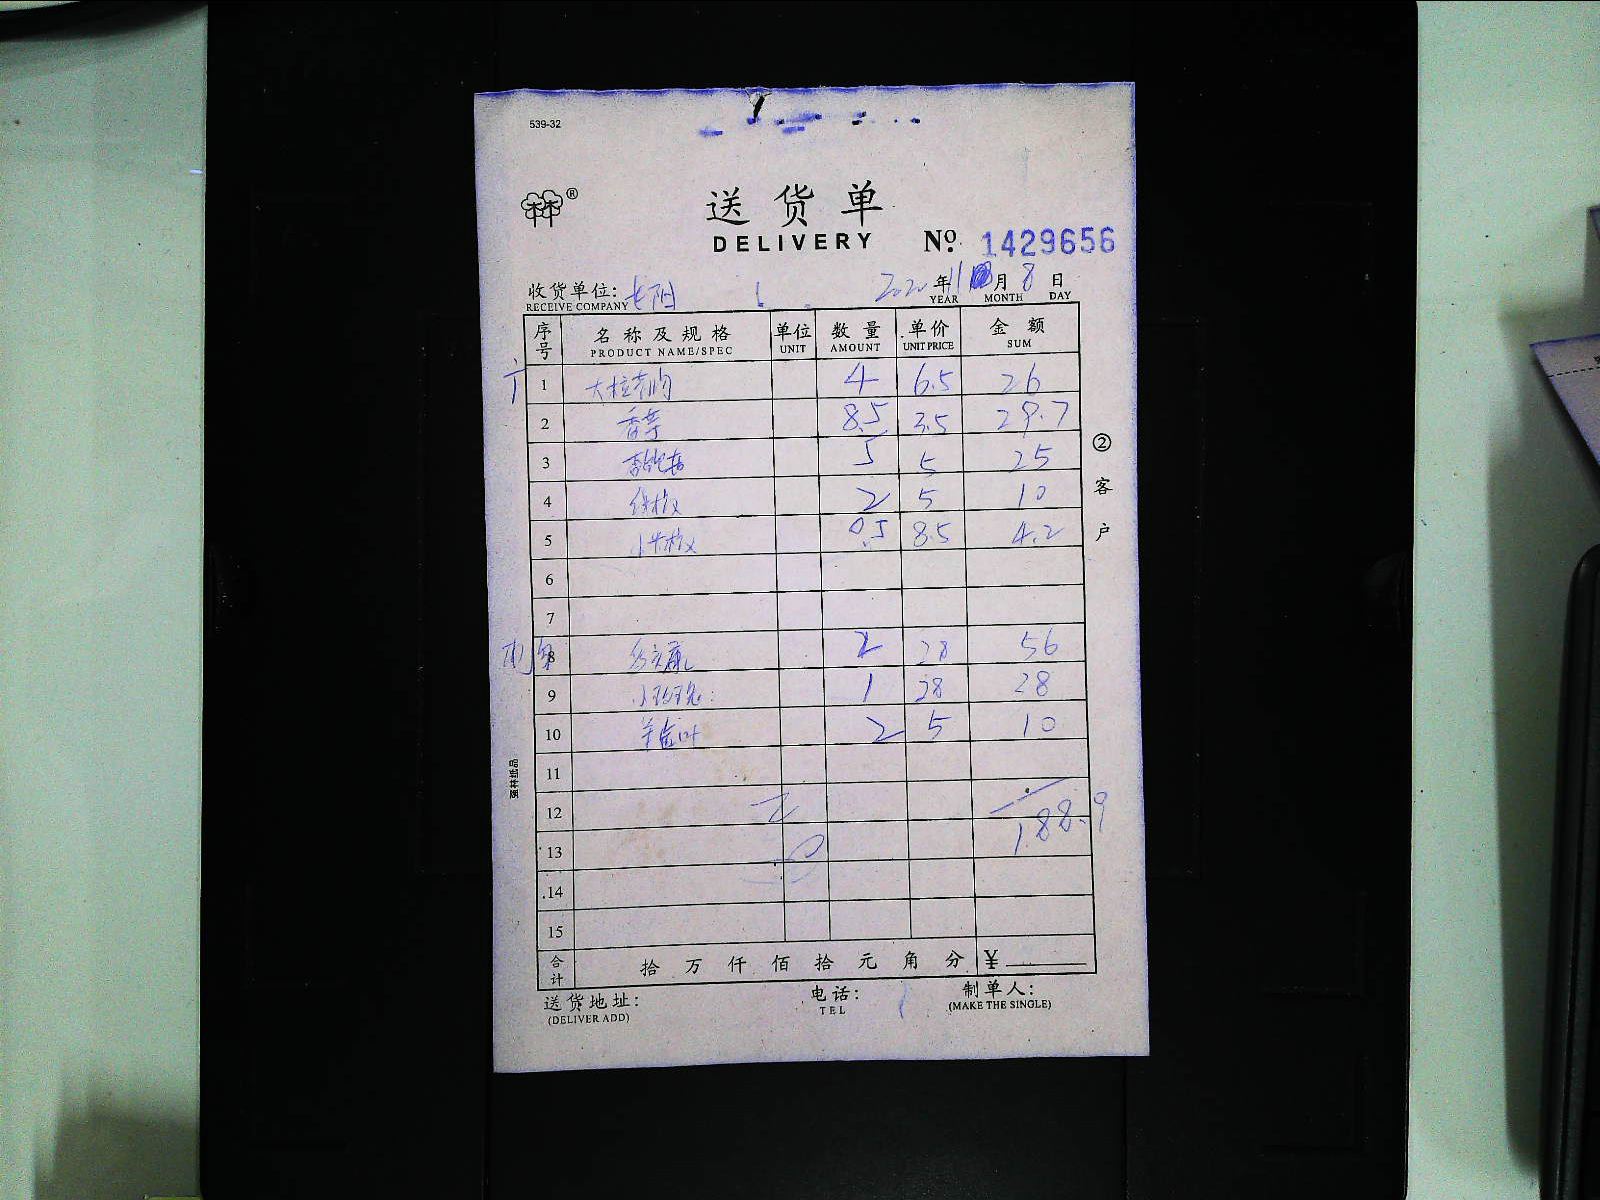 539-32
®
送货单
DELIVERY Nº. 1429656
收货单位: 2020 年 11 月 8 日
RECEIVE COMPANY YEAR MONTH DAY
序号 名称及规格 单位 数量 单价 金额
PRODUCT NAME/SPEC UNIT AMOUNT UNIT PRICE SUM
1 4 6.5 26
2 香芋 8.5 3.5 29.7
3 5 5 25
4 2 5 10
5 0.5 8.5 4.2
6
7
8 2 28 56
9 1 28 28
10 2 5 10
11
12
188.9
13
14
15
合计 拾 万 仟 佰 拾 元 角 分 ¥
送货地址: 电话: 制单人:
(DELIVER ADD) TEL (MAKE THE SINGLE)
② 客户
强林纸品